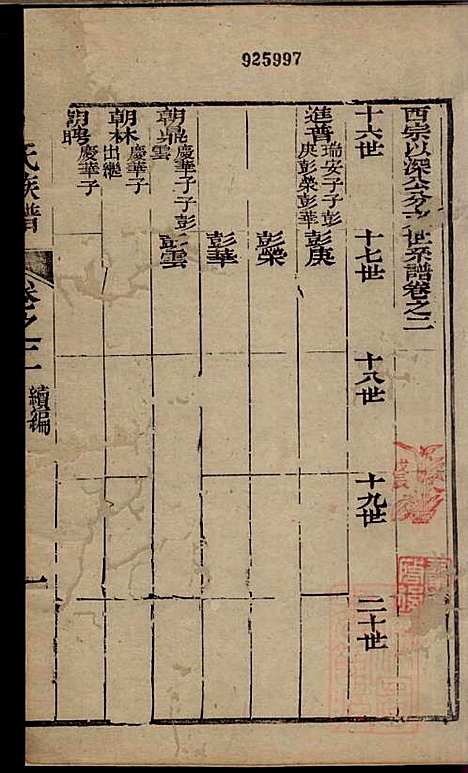 925997
西宗以深公分支世系譜卷之二
十六世
十七世
十八世
十九世
二十世
進普 瑞安子子彭
庚彭榮彭華
彭庚
彭榮
彭華
朝鼎 慶華子子彭
雲
彭雲
朝林 慶華子
出繼
朝聘 慶華子
氏族譜
卷之二
續編
一